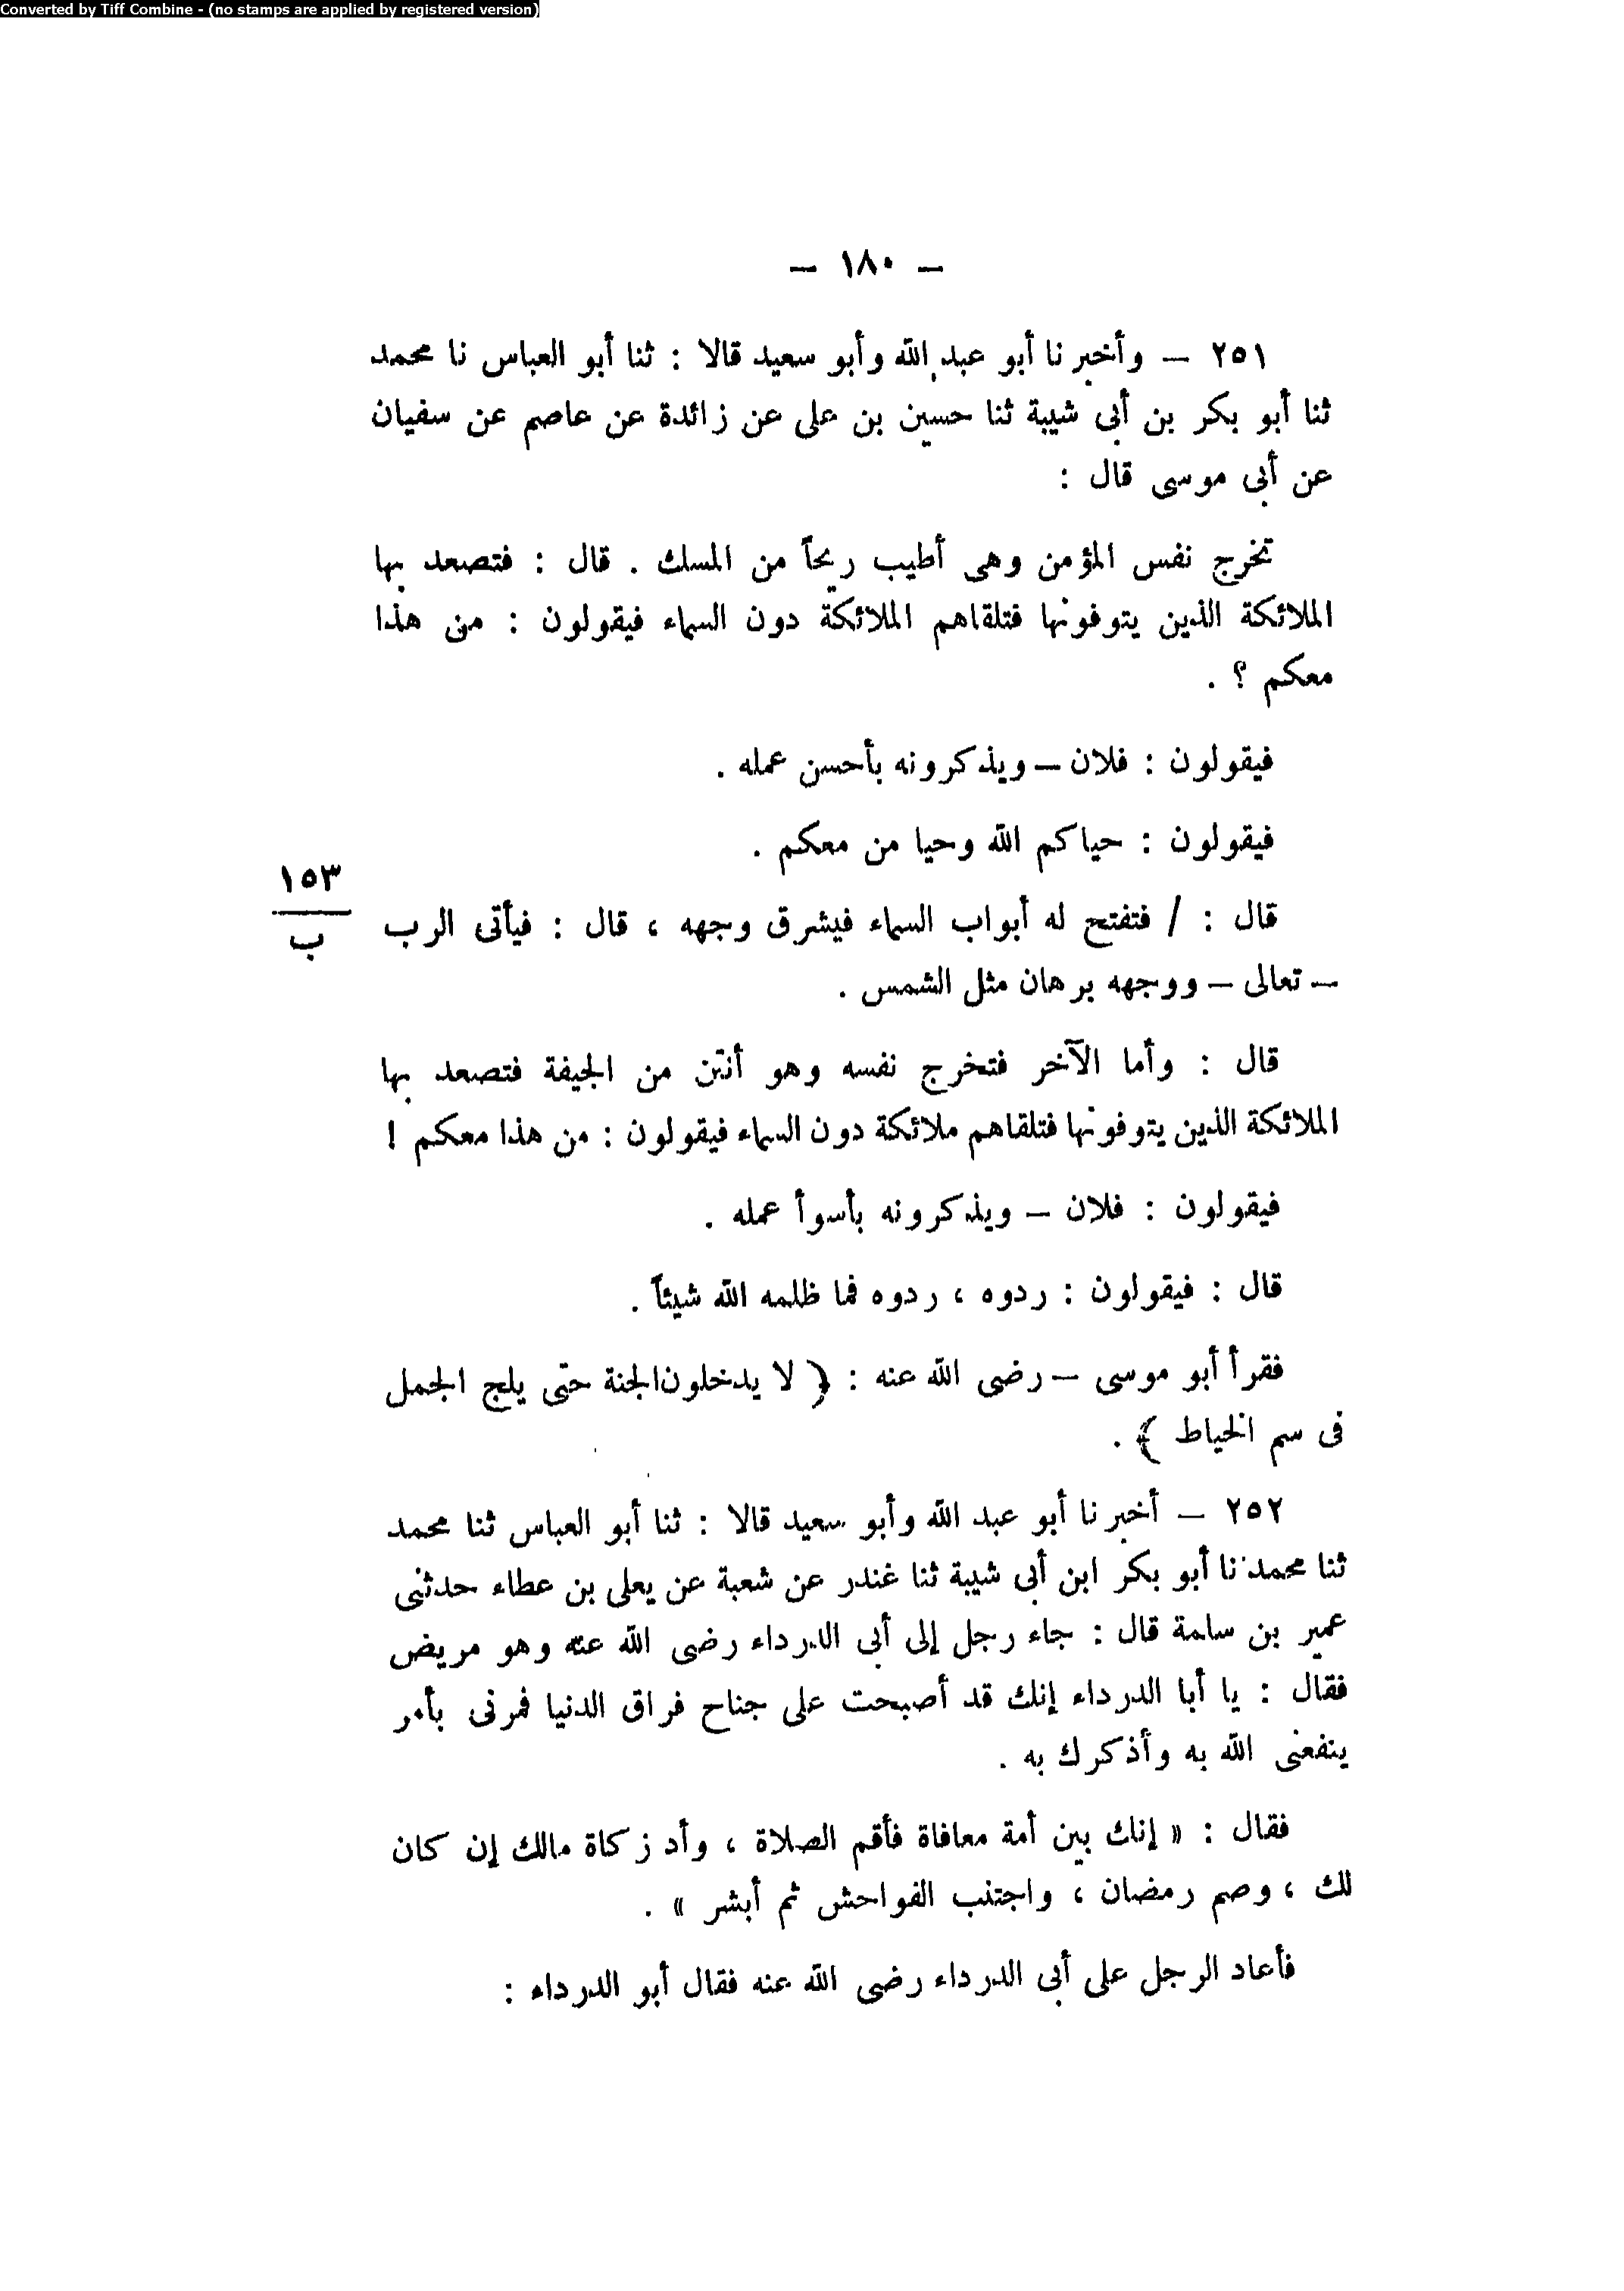 Converted by Tiff Combine - (no stamps are applied by registered version)
— ١٨٠ —
٢٥١ — وأخبرنا أبو عبد الله وأبو سعيد قالا : ثنا أبو العباس نا محمد
ثنا أبو بكر بن أبى شيبة ثنا حسين بن على عن زائدة عن عاصم عن سفيان
عن أبى موسى قال :
تخرج نفس المؤمن وهى أطيب ريحاً من المسك . قال : فتصعد بها
الملائكة الذين يتوفونها فتلقاهم الملائكة دون السماء فيقولون : من هذا
معكم ؟ .
فيقولون : فلان — ويذكرونه بأحسن عمله .
فيقولون : حياكم الله وحيا من معكم .
١٥٣
ب
قال : / فتفتح له أبواب السماء فيشرق وجهه ، قال : فيأتى الرب
— تعالى — ووجهه برهان مثل الشمس .
قال : وأما الآخر فتخرج نفسه وهو أنتن من الجيفة فتصعد بها
الملائكة الذين يتوفونها فتلقاهم ملائكة دون السماء فيقولون : من هذا معكم !
فيقولون : فلان — ويذكرونه بأسوأ عمله .
قال : فيقولون : ردوه ، ردوه فما ظلمه الله شيئاً .
فقرأ أبو موسى — رضى الله عنه : ﴿ لا يدخلون الجنة حتى يلج الجمل
فى سم الخياط ﴾ .
٢٥٢ — أخبرنا أبو عبد الله وأبو سعيد قالا : ثنا أبو العباس ثنا محمد
ثنا محمد نا أبو بكر ابن أبى شيبة ثنا غندر عن شعبة عن يعلى بن عطاء حدثنى
عمير بن سلمة قال : جاء رجل إلى أبى الدرداء رضى الله عنه وهو مريض
فقال : يا أبا الدرداء إنك قد أصبحت على جناح فراق الدنيا فمرنى بأمر
ينفعنى الله به وأذكرك به .
فقال : « إنك بين أمة معافاة فأقم الصلاة ، وأد زكاة مالك إن كان
لك ، وصم رمضان ، واجتنب الفواحش ثم أبشر » .
فأعاد الرجل على أبى الدرداء رضى الله عنه فقال أبو الدرداء :